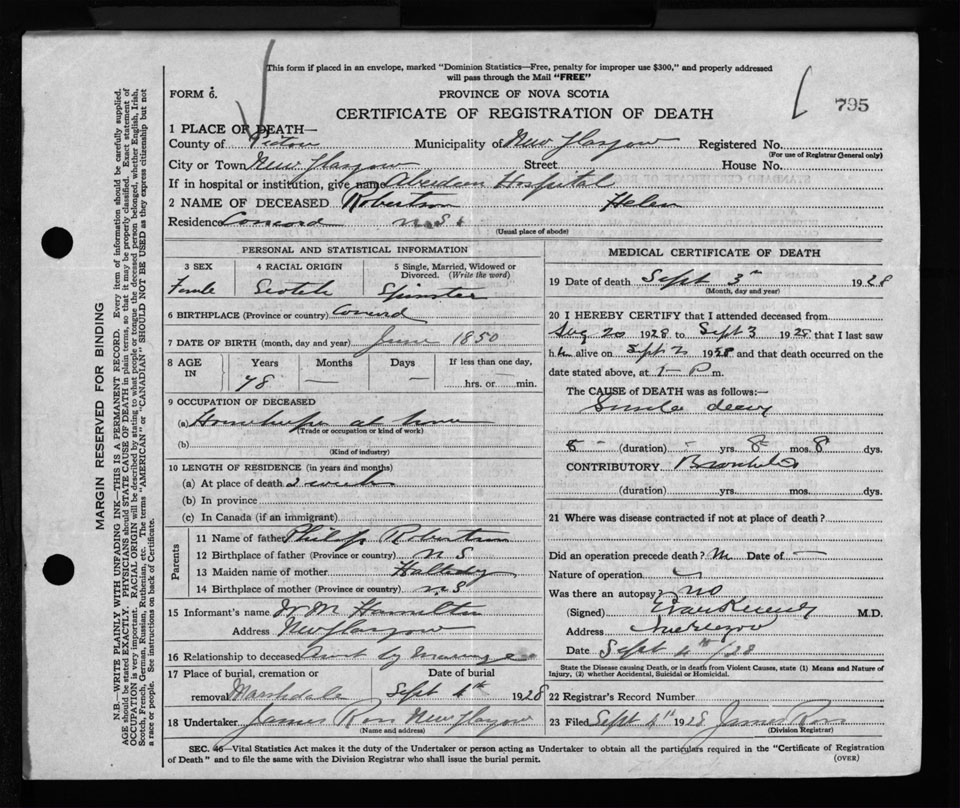 This form if placed in an envelope, marked "Dominion Statistics—Free, penalty for improper use $300," and properly addressed
will pass through the Mail "FREE"
FORM 6.
PROVINCE OF NOVA SCOTIA
795
CERTIFICATE OF REGISTRATION OF DEATH
1 PLACE OF DEATH—
County of Pictou Municipality of New Glasgow Registered No.
(For use of Registrar General only)
City or Town New Glasgow Street House No.
If in hospital or institution, give name Aberdeen Hospital
2 NAME OF DECEASED Robertson Helen
Residence Concord N.S.
(Usual place of abode)
PERSONAL AND STATISTICAL INFORMATION
3 SEX 4 RACIAL ORIGIN 5 Single, Married, Widowed or Divorced. (Write the word)
Female Scotch Spinster
6 BIRTHPLACE (Province or country) Concord
7 DATE OF BIRTH (month, day and year) June 1850
8 AGE IN Years Months Days If less than one day,
78 — — hrs. or min.
9 OCCUPATION OF DECEASED
(a) Housekeeper at home
(Trade or occupation or kind of work)
(b)
(Kind of industry)
10 LENGTH OF RESIDENCE (in years and months)
(a) At place of death 2 weeks
(b) In province
(c) In Canada (if an immigrant)
Parents
11 Name of father Philip Robertson
12 Birthplace of father (Province or country) N S
13 Maiden name of mother
14 Birthplace of mother (Province or country) N S
15 Informant's name Hamilton
Address New Glasgow
16 Relationship to deceased Aunt by marriage
17 Place of burial, cremation or Date of burial
removal Marshdale Sept 4th 1928
18 Undertaker James Ross New Glasgow
(Name and address)
MEDICAL CERTIFICATE OF DEATH
19 Date of death Sept 3rd 1928
(Month, day and year)
20 I HEREBY CERTIFY that I attended deceased from
Aug 20 1928 to Sept 3 1928 that I last saw
h er alive on Sept 2 1928 and that death occurred on the
date stated above, at 1 — P m.
The CAUSE of DEATH was as follows:—
Senile decay
(duration) yrs. 8 mos. 8 dys.
CONTRIBUTORY Bronchitis
(duration) yrs. mos. dys.
21 Where was disease contracted if not at place of death?
Did an operation precede death? No Date of —
Nature of operation
Was there an autopsy? no
(Signed) M.D.
Address
Date Sept 4th/28
State the Disease causing Death, or in death from Violent Causes, state (1) Means and Nature of
Injury, (2) whether Accidental, Suicidal or Homicidal.
22 Registrar's Record Number
23 Filed Sept 4th 1928 James Ross
(Division Registrar)
SEC. 46—Vital Statistics Act makes it the duty of the Undertaker or person acting as Undertaker to obtain all the particulars required in the "Certificate of Registration
of Death" and to file the same with the Division Registrar who shall issue the burial permit.
(OVER)
MARGIN RESERVED FOR BINDING
N.B.—WRITE PLAINLY WITH UNFADING INK—THIS IS A PERMANENT RECORD. Every item of information should be carefully supplied.
AGE should be stated EXACTLY. PHYSICIANS should STATE CAUSE OF DEATH in plain terms, so that it may be properly classified. Exact statement of
OCCUPATION is very important. RACIAL ORIGIN will be described by stating to what people or tongue the deceased person belonged, whether English, Irish,
Scotch, French, German, Russian, Ruthenian, etc. The terms "AMERICAN" or "CANADIAN" SHOULD NOT BE USED as they express citizenship but not
a race or people. See instructions on back of Certificate.